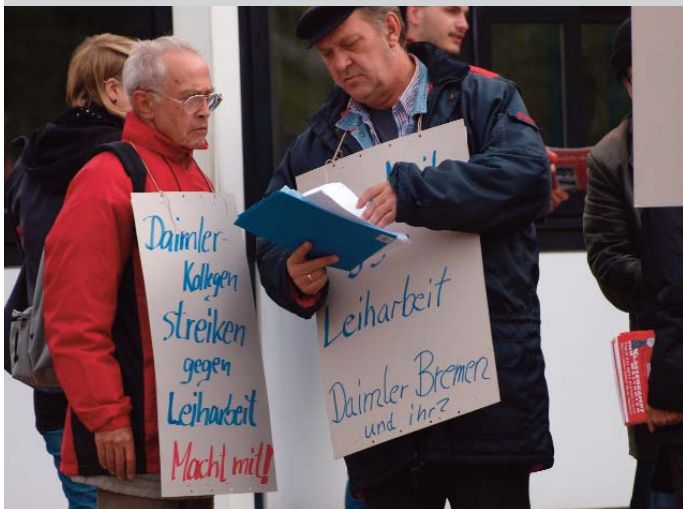 Daimler-
Kollegen
streiken
gegen
Leiharbeit
Macht mit!
Leiharbeit
Daimler Bremen
und ihr?